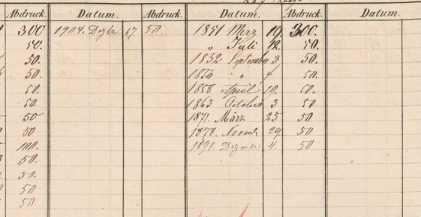 Abdruck. Datum. Abdruck. Datum. Abdruck. Datum.
300. 1904. Dzbr 17 50. 1851 März 19. 300.
50. " Juli 12. 50.
50. 1852 September 3 50.
50. " 50.
50. 1858 April 12. 50.
50. 1863 October 3 50
50 1871. März 25 50
50 1878. Novemb 29 50
100. 1891. Dezemb 4. 50
50.
50.
50
50